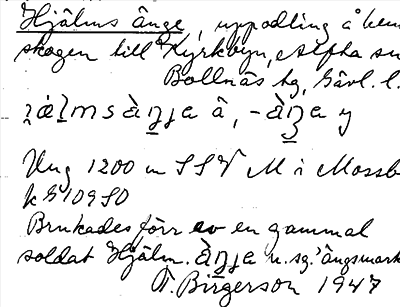 Hjälms änge, uppodling å hem
skogen till Kyrkbyn, Alfta sn
Bollnäs tg, Gävl. l.
â, -
Ung 1200 m SSV M i Mossb
k G 10950
Brukades förr av en gammal
soldat Hjälm. n. sg. 'ängsmark
T. Birgerson 1947